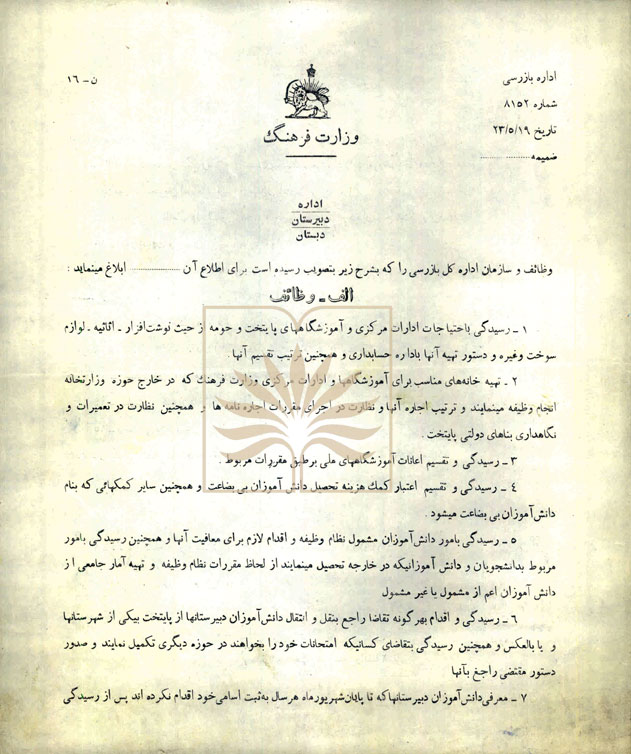 ن - ۱۶
اداره بازرسی
شماره ۸۱۵۲
تاریخ ۲۳/۵/۱۹
ضمیمه ................
وزارت فرهنگ
اداره
دبیرستان
دبستان
وظائف و سازمان اداره کل بازرسی را که بشرح زیر بتصویب رسیده است برای اطلاع آن ................ ابلاغ مینماید :
الف - وظائف
۱ - رسیدگی باحتیاجات ادارات مرکزی و آموزشگاههای پایتخت و حومه از حیث نوشت‌افزار - اثاثیه - لوازم
سوخت وغیره و دستور تهیه آنها باداره حسابداری و همچنین ترتیب تقسیم آنها .
۲ - تهیه خانه‌های مناسب برای آموزشگاهها و ادارات مرکزی وزارت فرهنگ که در خارج حوزه وزارتخانه
انجام وظیفه مینمایند و ترتیب اجاره آنها و نظارت در اجرای مقررات اجاره نامه ها و همچنین نظارت در تعمیرات و
نگاهداری بناهای دولتی پایتخت .
۳ - رسیدگی و تقسیم اعانات آموزشگاههای ملی برطبق مقررات مربوط .
۴ - رسیدگی و تقسیم اعتبار کمك هزینه تحصیل دانش آموزان بی بضاعت و همچنین سایر کمکهائی که بنام
دانش‌آموزان بی بضاعت میشود .
۵ - رسیدگی بامور دانش‌آموزان مشمول نظام وظیفه و اقدام لازم برای معافیت آنها و همچنین رسیدگی بامور
مربوط بدانشجویان و دانش آموزانیکه در خارجه تحصیل مینمایند از لحاظ مقررات نظام وظیفه و تهیه آمار جامعی از
دانش آموزان اعم از مشمول یا غیر مشمول
۶ - رسیدگی و اقدام بهر گونه تقاضا راجع بنقل و انتقال دانش‌آموزان دبیرستانها از پایتخت بیکی از شهرستانها
و یا بالعکس و همچنین رسیدگی بتقاضای کسانیکه امتحانات خود را بخواهند در حوزه دیگری تکمیل نمایند و صدور
دستور مقتضی راجع بآنها
۷ - معرفی دانش‌آموزان دبیرستانها که تا پایان شهریور ماه هر سال به ثبت اسامی خود اقدام نکرده اند پس از رسیدگی